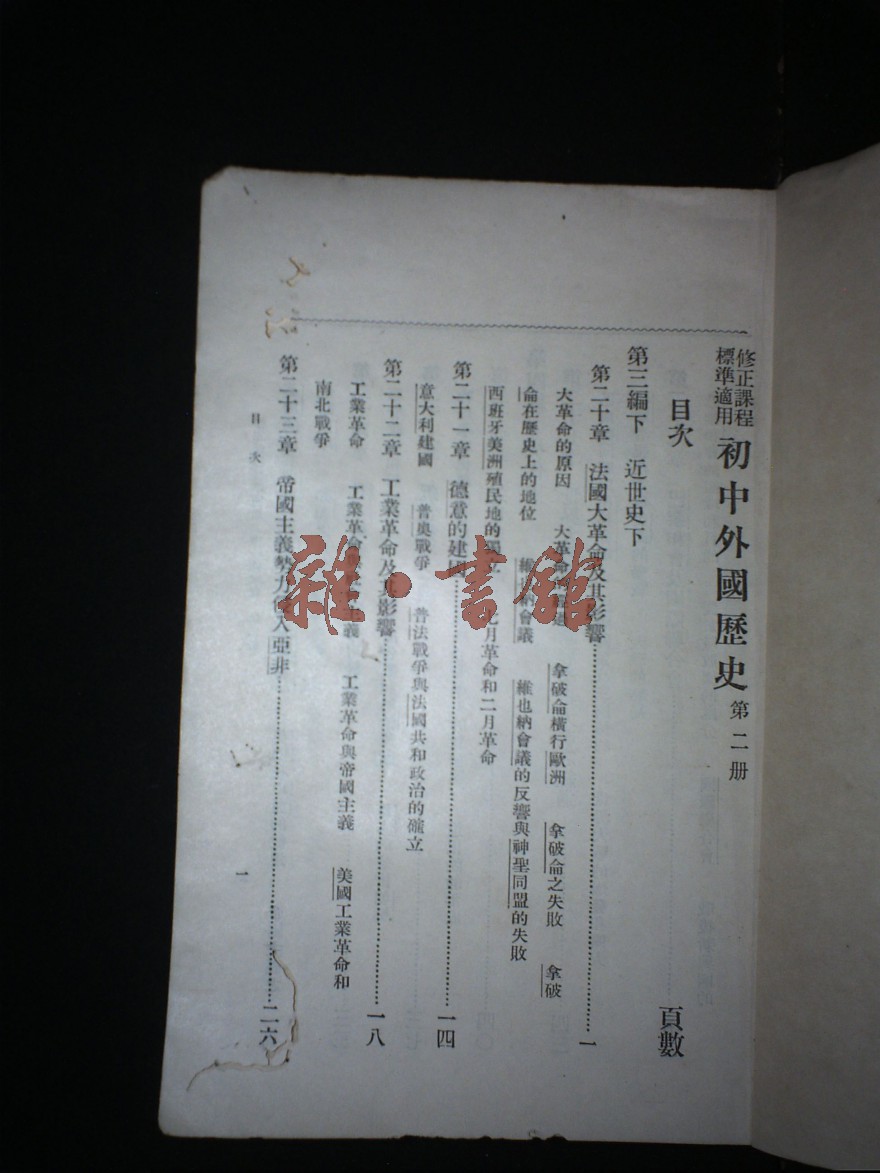 修正課程
標準適用
初中外國歷史 第二册
目次 頁數
第三編下 近世史下
第二十章 法國大革命及其影響 一
大革命的原因 大革命 拿破侖橫行歐洲 拿破侖之失敗 拿破
侖在歷史上的地位 維也納會議 維也納會議的反響與神聖同盟的失敗
西班牙美洲殖民地的獨立 七月革命和二月革命
第二十一章 德意的建國 一四
意大利建國 普奧戰爭 普法戰爭與法國共和政治的確立
第二十二章 工業革命及其影響 一八
工業革命 工業革命與 主義 工業革命與帝國主義 美國工業革命和
南北戰爭
第二十三章 帝國主義勢力侵入亞非 二六
目次
一
雜·書館